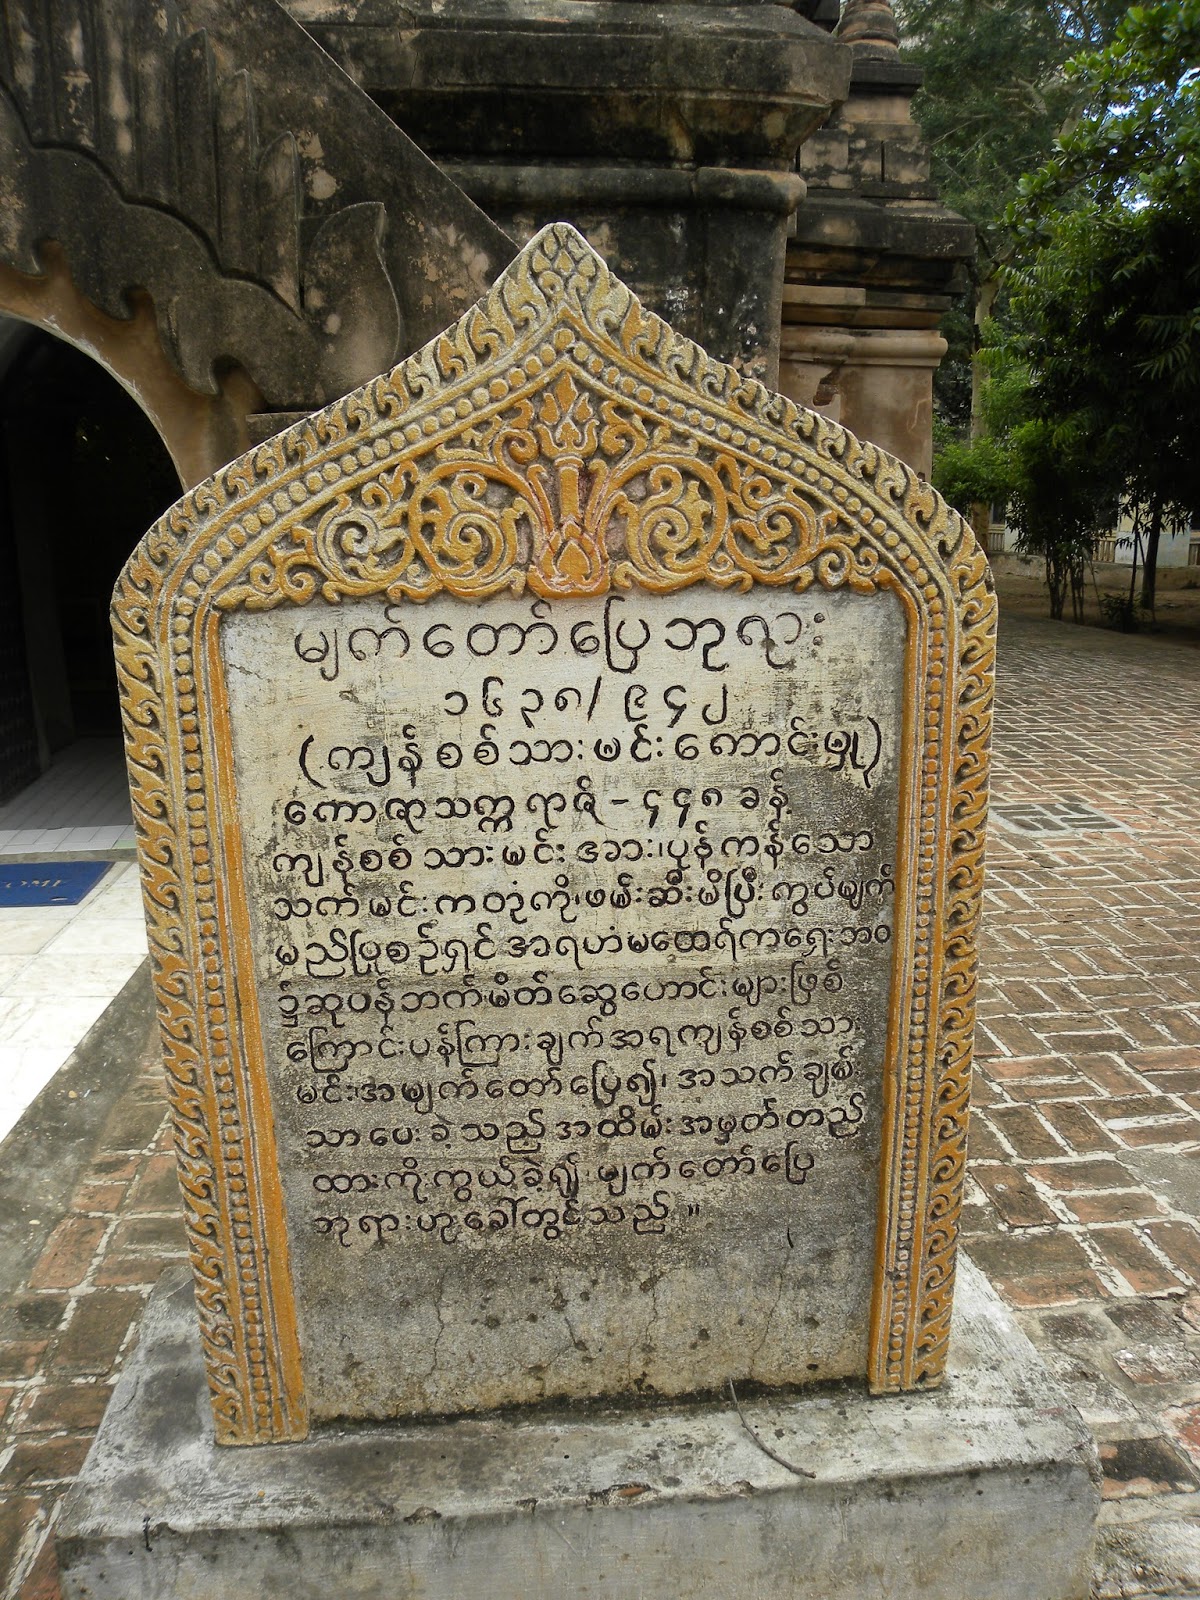 မျက်တော်ပြေဘုရား
၁၆၃၈/၉၄၂
(ကျန်စစ်သားမင်းကောင်းမှု)
ကောဇာသက္ကရာဇ်-၄၄၈ ခန့်
ကျန်စစ်သားမင်းအား၊ပုန်ကန်သော
သက်မင်းကတုံကို၊ဖမ်းဆီးမိပြီးကွပ်မျက်
မည်ပြုစဉ်ရှင်အရဟံမထေရ်ကရှေးဘဝ
၌ဆုပန်ဘက်မိတ်ဆွေဟောင်းများဖြစ်
ကြောင်းပန်ကြားချက်အရကျန်စစ်သား
မင်းအမျက်တော်ပြေ၍၊အသက်ချမ်း
သာပေးခဲ့သည့်အထိမ်းအမှတ်တည်
ထားကိုးကွယ်ခဲ့၍၊မျက်တော်ပြေ
ဘုရားဟုခေါ်တွင်သည်။
OME